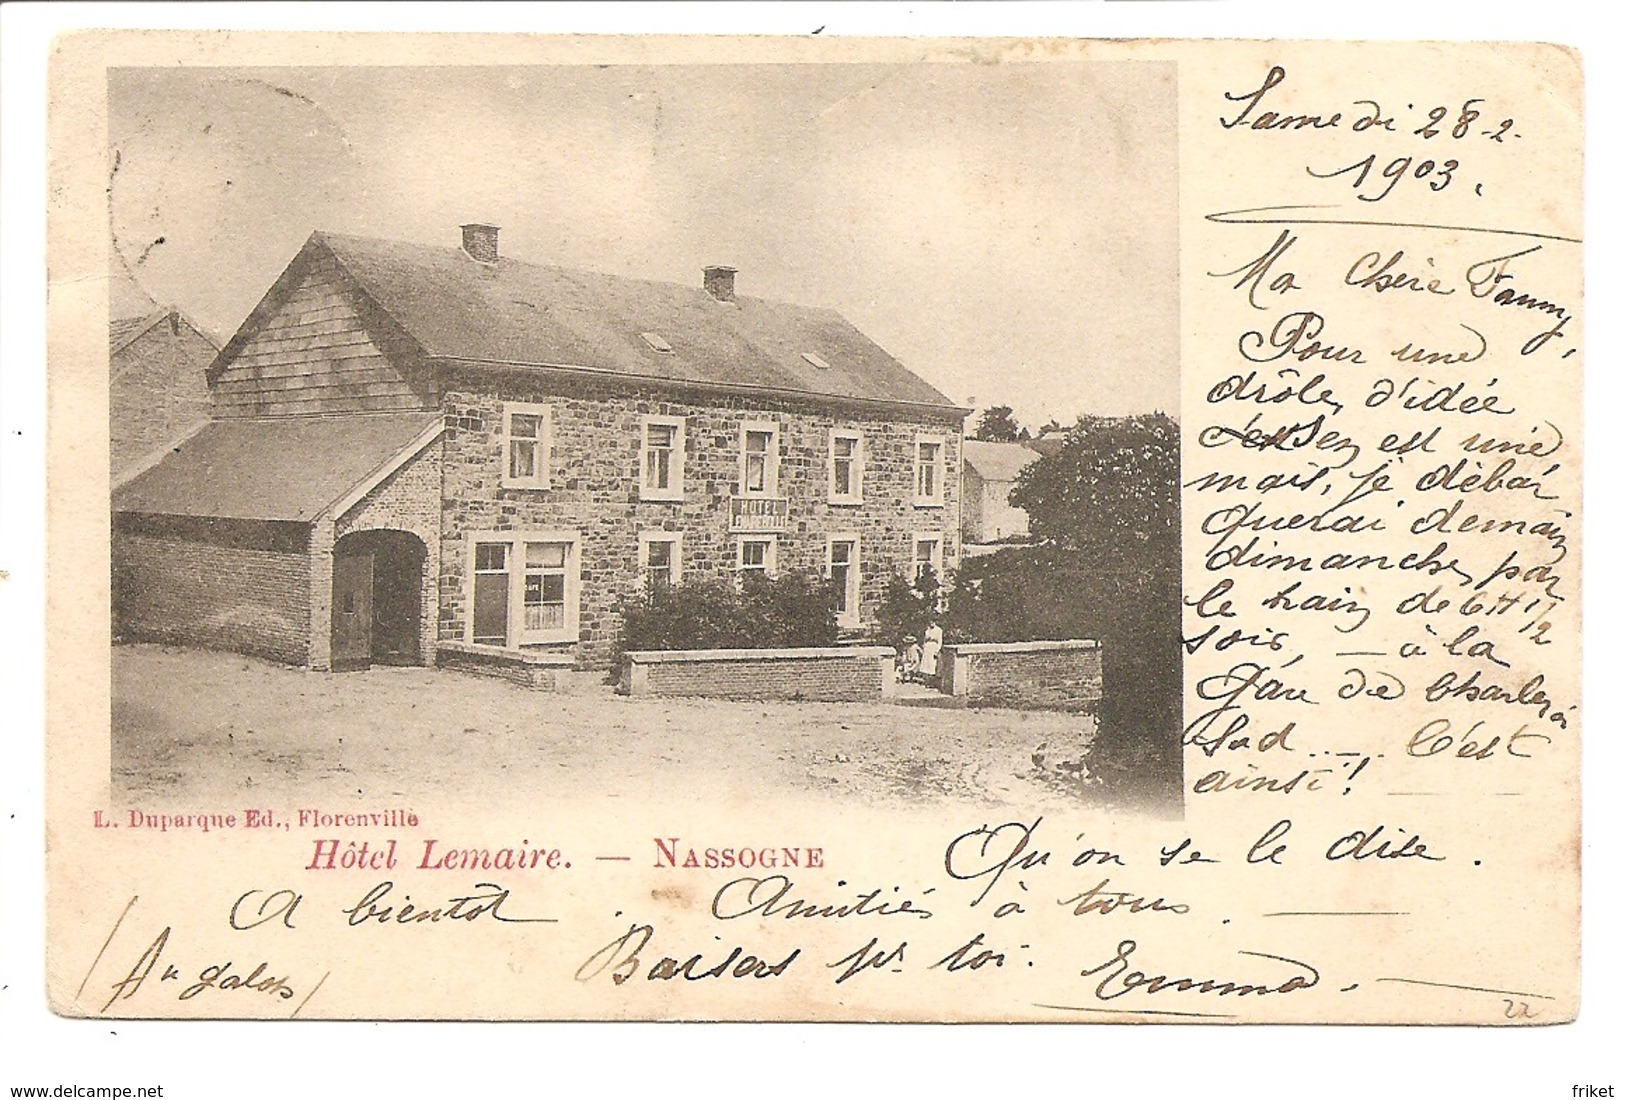 Samedi 28-2-
1903.
Ma Chère Fanny,
Pour une
drôle d'idée
en est une
mais, je débar
querai demain
dimanche, par
le train de 6H 1/2
soir, — à la
Gare de Charleroi
Sud ..—. C'est
ainsi !
HOTEL
L. Duparque Ed., Florenville
Hôtel Lemaire. — NASSOGNE
Qu'on se le dise.
A bientôt. Amitiés à tous.
(Au galop)
Baisers pr toi. Emma.
22
www.delcampe.net
friket